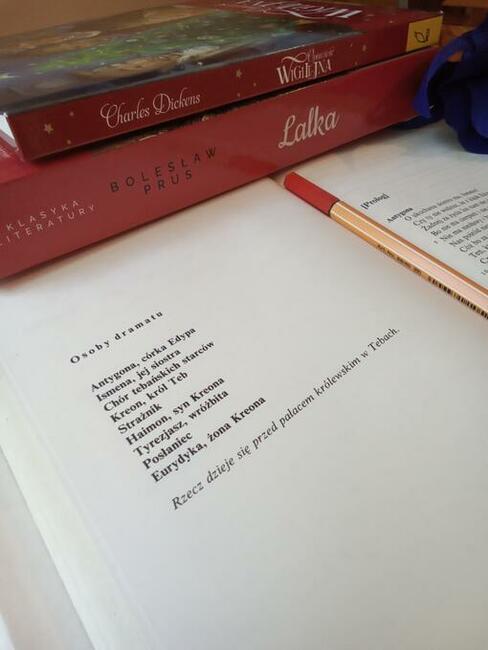 WIGILIJNA
Charles Dickens
Opowieść
WIGILIJNA
KLASYKA
LITERATURY
BOLESŁAW
PRUS
Lalka
[Prolog]
Antygona
O ukochana siostro ma, Ismeno!
Czy ty nie widzisz, że
Osoby dramatu
Antygona, córka Edypa
Ismena, jej siostra
Chór tebańskich starców
Kreon, król Teb
Strażnik
Haimon, syn Kreona
Tyrezjasz, wróżbita
Posłaniec
Eurydyka, żona Kreona
Rzecz dzieje się przed pałacem królewskim w Tebach.